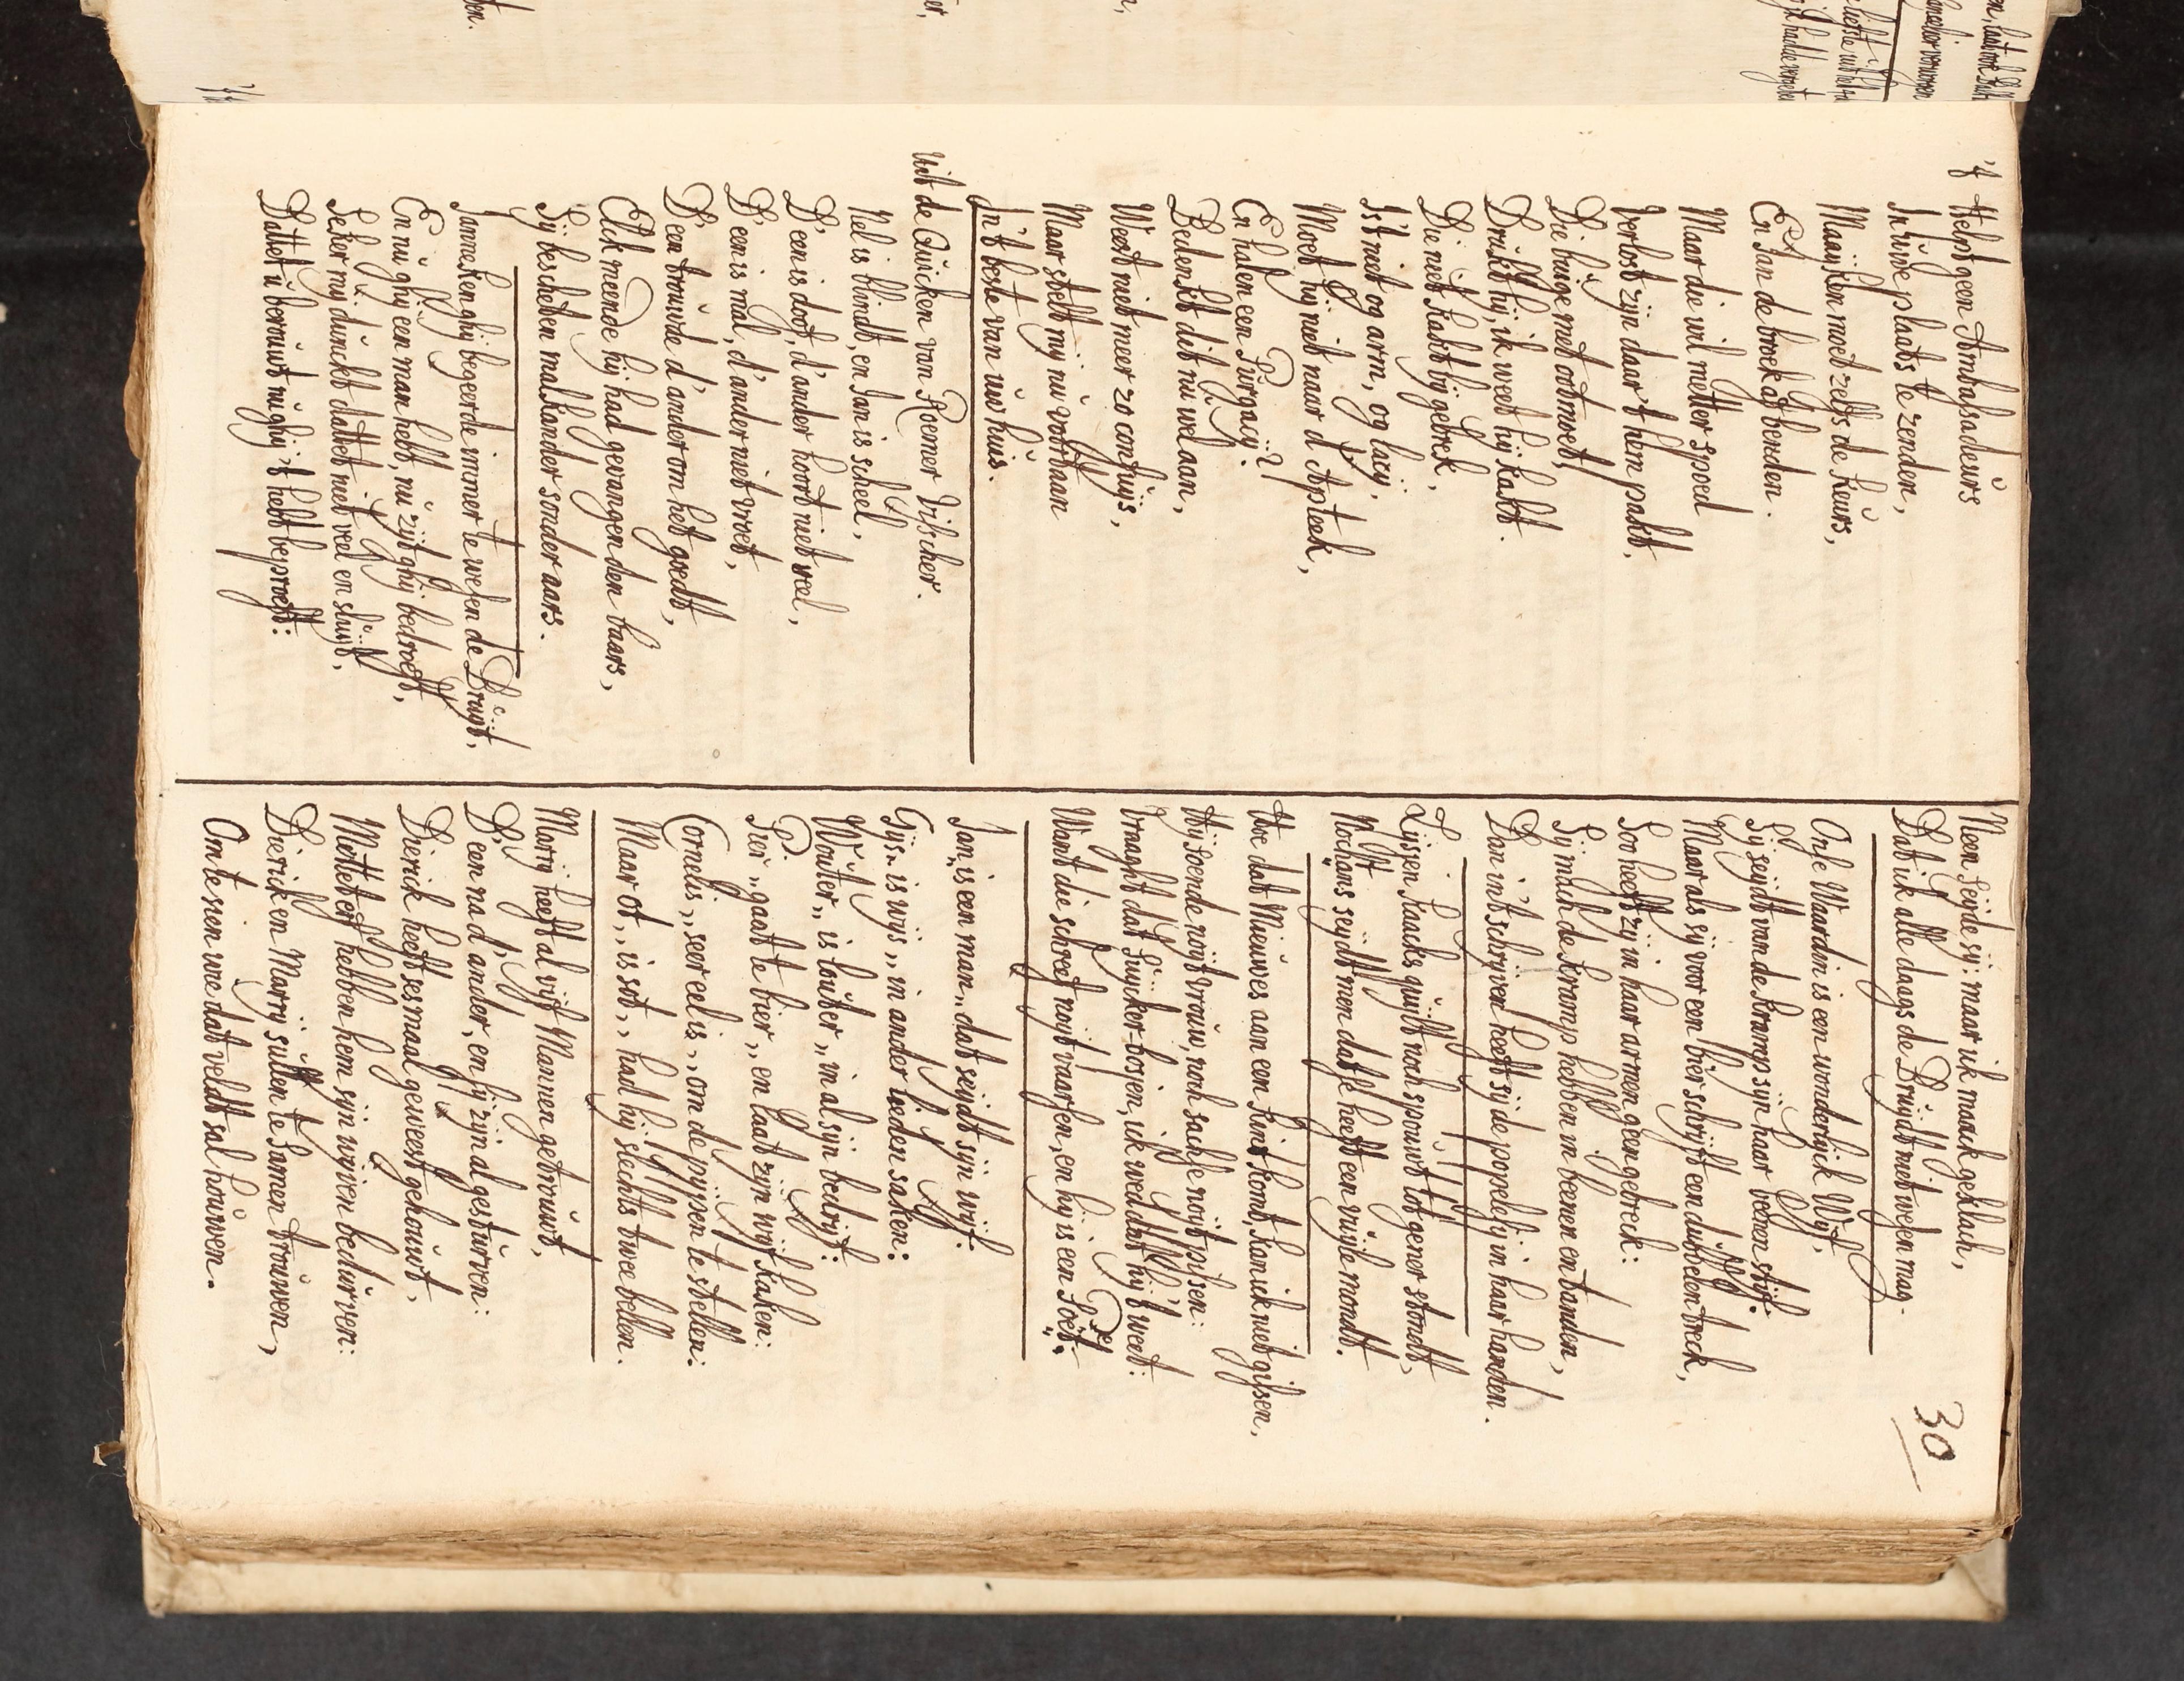 't Helpt geen Ambasadeurs
In uwe plaats te zenden,
Maayken moet zelfs de keurs,
En Jan de broek af benden.
Maar die wil metter spoed
Verlost zijn daar 't hem pakt,
Die buige met ootmoed,
Drukt hij, ik weet hij kakt.
Die niet kakt bij gebrek,
Is 't niet og arm, og lacij,
Moet hij niet naar d'Apteek,
En halen een Purgacij?
Bedenkt dit nu wel aan,
Weest niet meer zo confuijs,
Maar stelt mij nu voortaan
In 't beste van uw huis.
Uit de Quicken van Roemer Visscher.
Nel is blindt, en Jan is scheel,
D'een is doof, d'ander hoort niet veel,
D'een is mal, d'ander niet vroet,
D'een trouwde d'ander om het goedt,
Elck meende hij had gevangen den baars,
Sij bescheten malkander sonder aars.
Janneken ghij begeerde immer te wesen de Bruijt,
En nu ghij een man hebt, nu zijt ghij bedroeft,
Seker mij dunckt dattet niet veel en sluijt,
Dattet u berouwt nu ghij 't hebt beproeft:
30
Neen seijde sij: maar ik maack geklach,
Dat ik alle daags de Bruijdt niet wesen mag.
Onse Waardin is een wonderlijck Wijf,
Sij seijdt van de kramp sijn haar beenen stijf.
Maar als sij voor een bier schrijft een dubbelen treck,
Soo heeft zij in haar armen geen gebreck:
Sij mach de kramp hebben in beenen en tanden,
Dan in 't schrijven heeft sij de popelesij in haar handen.
Lijsjen kaacks quijlt noch spouwt tot gener stondt,
Nochtans seijdt men dat se heeft een vuijle mondt.
Hoe dat Mieuwes aan een kint komt, kan ick niet gissen,
Hij soende noijt vrouw, noch sachse noijt pissen:
Vraaght dat Suijcker-bosjen, ick wed dat hij 't weet:
Want die schreef noijt vaarsen, en hij is een Poëet.
Jan, is een man, dat seijdt sijn wijf.
Gijs, is wijs, in ander lieden saken:
Wouter, is louter, in al sijn bedrijf:
Pier, gaat te bier, en laat zijn wijf kaken:
Cornelis, seer eel is, om de pijpen te stellen:
Maar ot, is sot, had hij slechts twee bellen.
Marrij heeft al vijf Mannen getrouwt,
D'een na d'ander, en sij zijn al gesturven:
Dierick heeft sesmaal geweest gehouwt,
Mettet erf hebben hem sijn wijven bedurven:
Dierick en Marrij sullen te samen trouwen,
Om te sien wie dat veldt sal houwen.